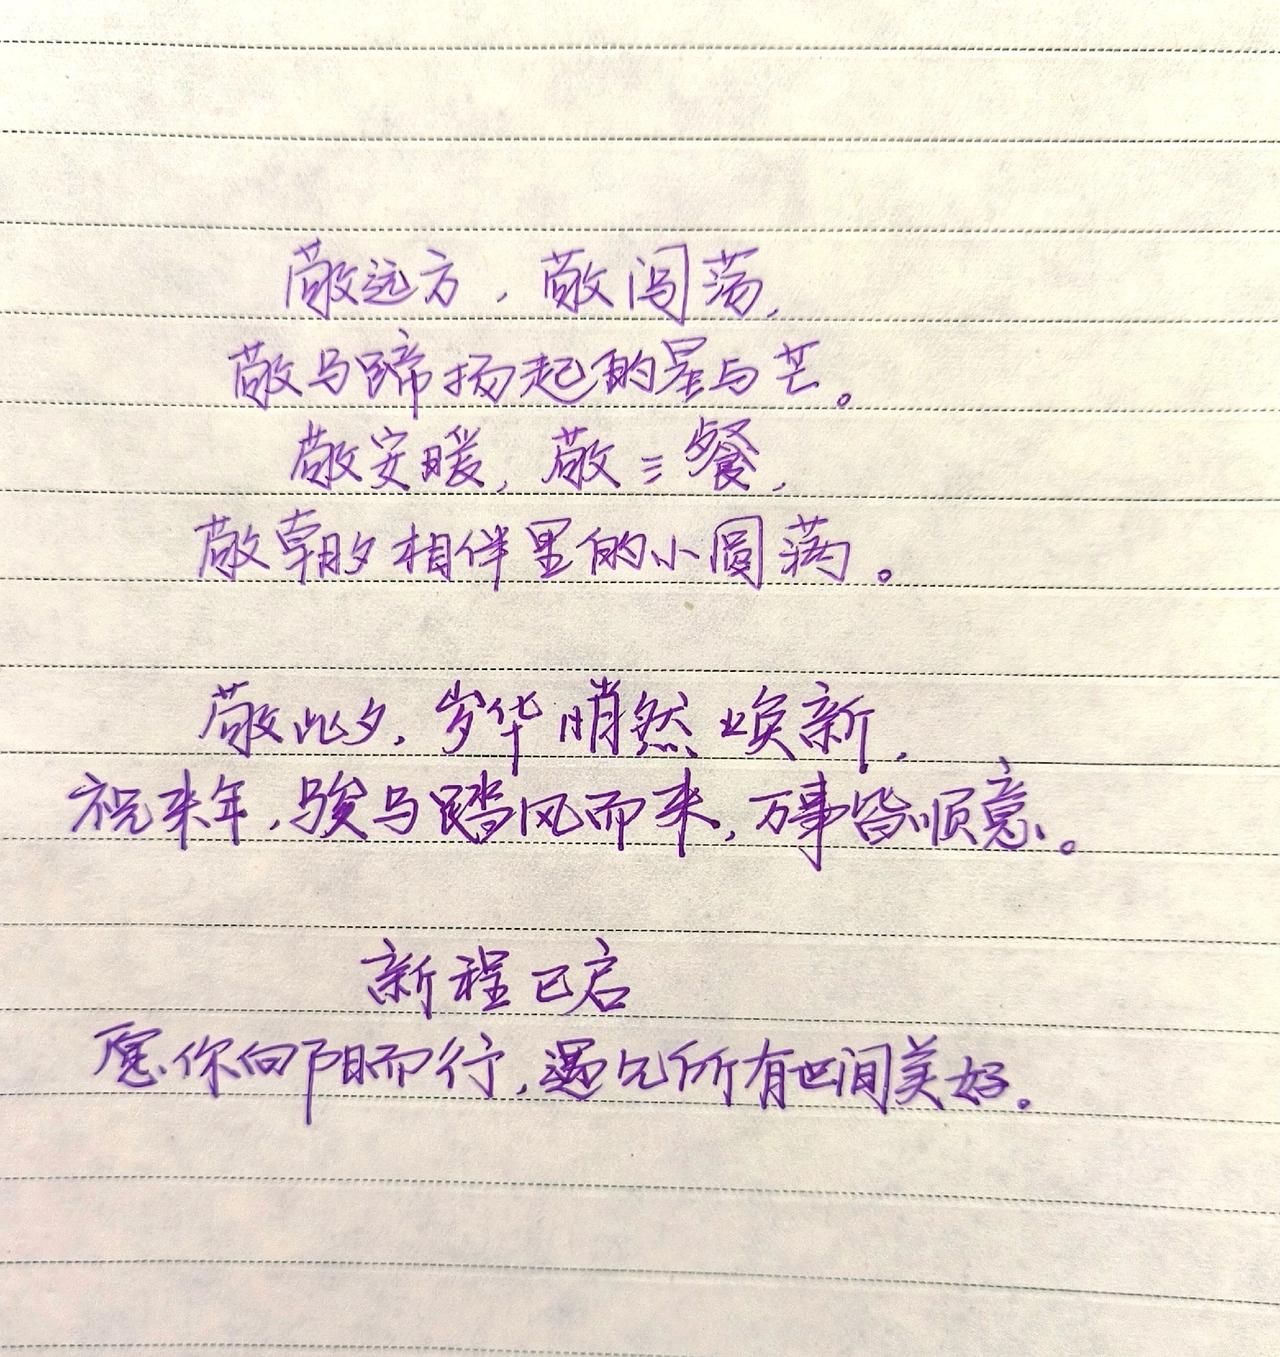 敬远方，敬闯荡，
敬马蹄扬起的星与芒。
敬安暖，敬三餐，
敬朝夕相伴里的小圆满。
敬此夕，岁华悄然焕新，
祝来年，骏马踏风而来，万事皆顺意。
新程已启
愿你向阳而行，遇见所有世间美好。